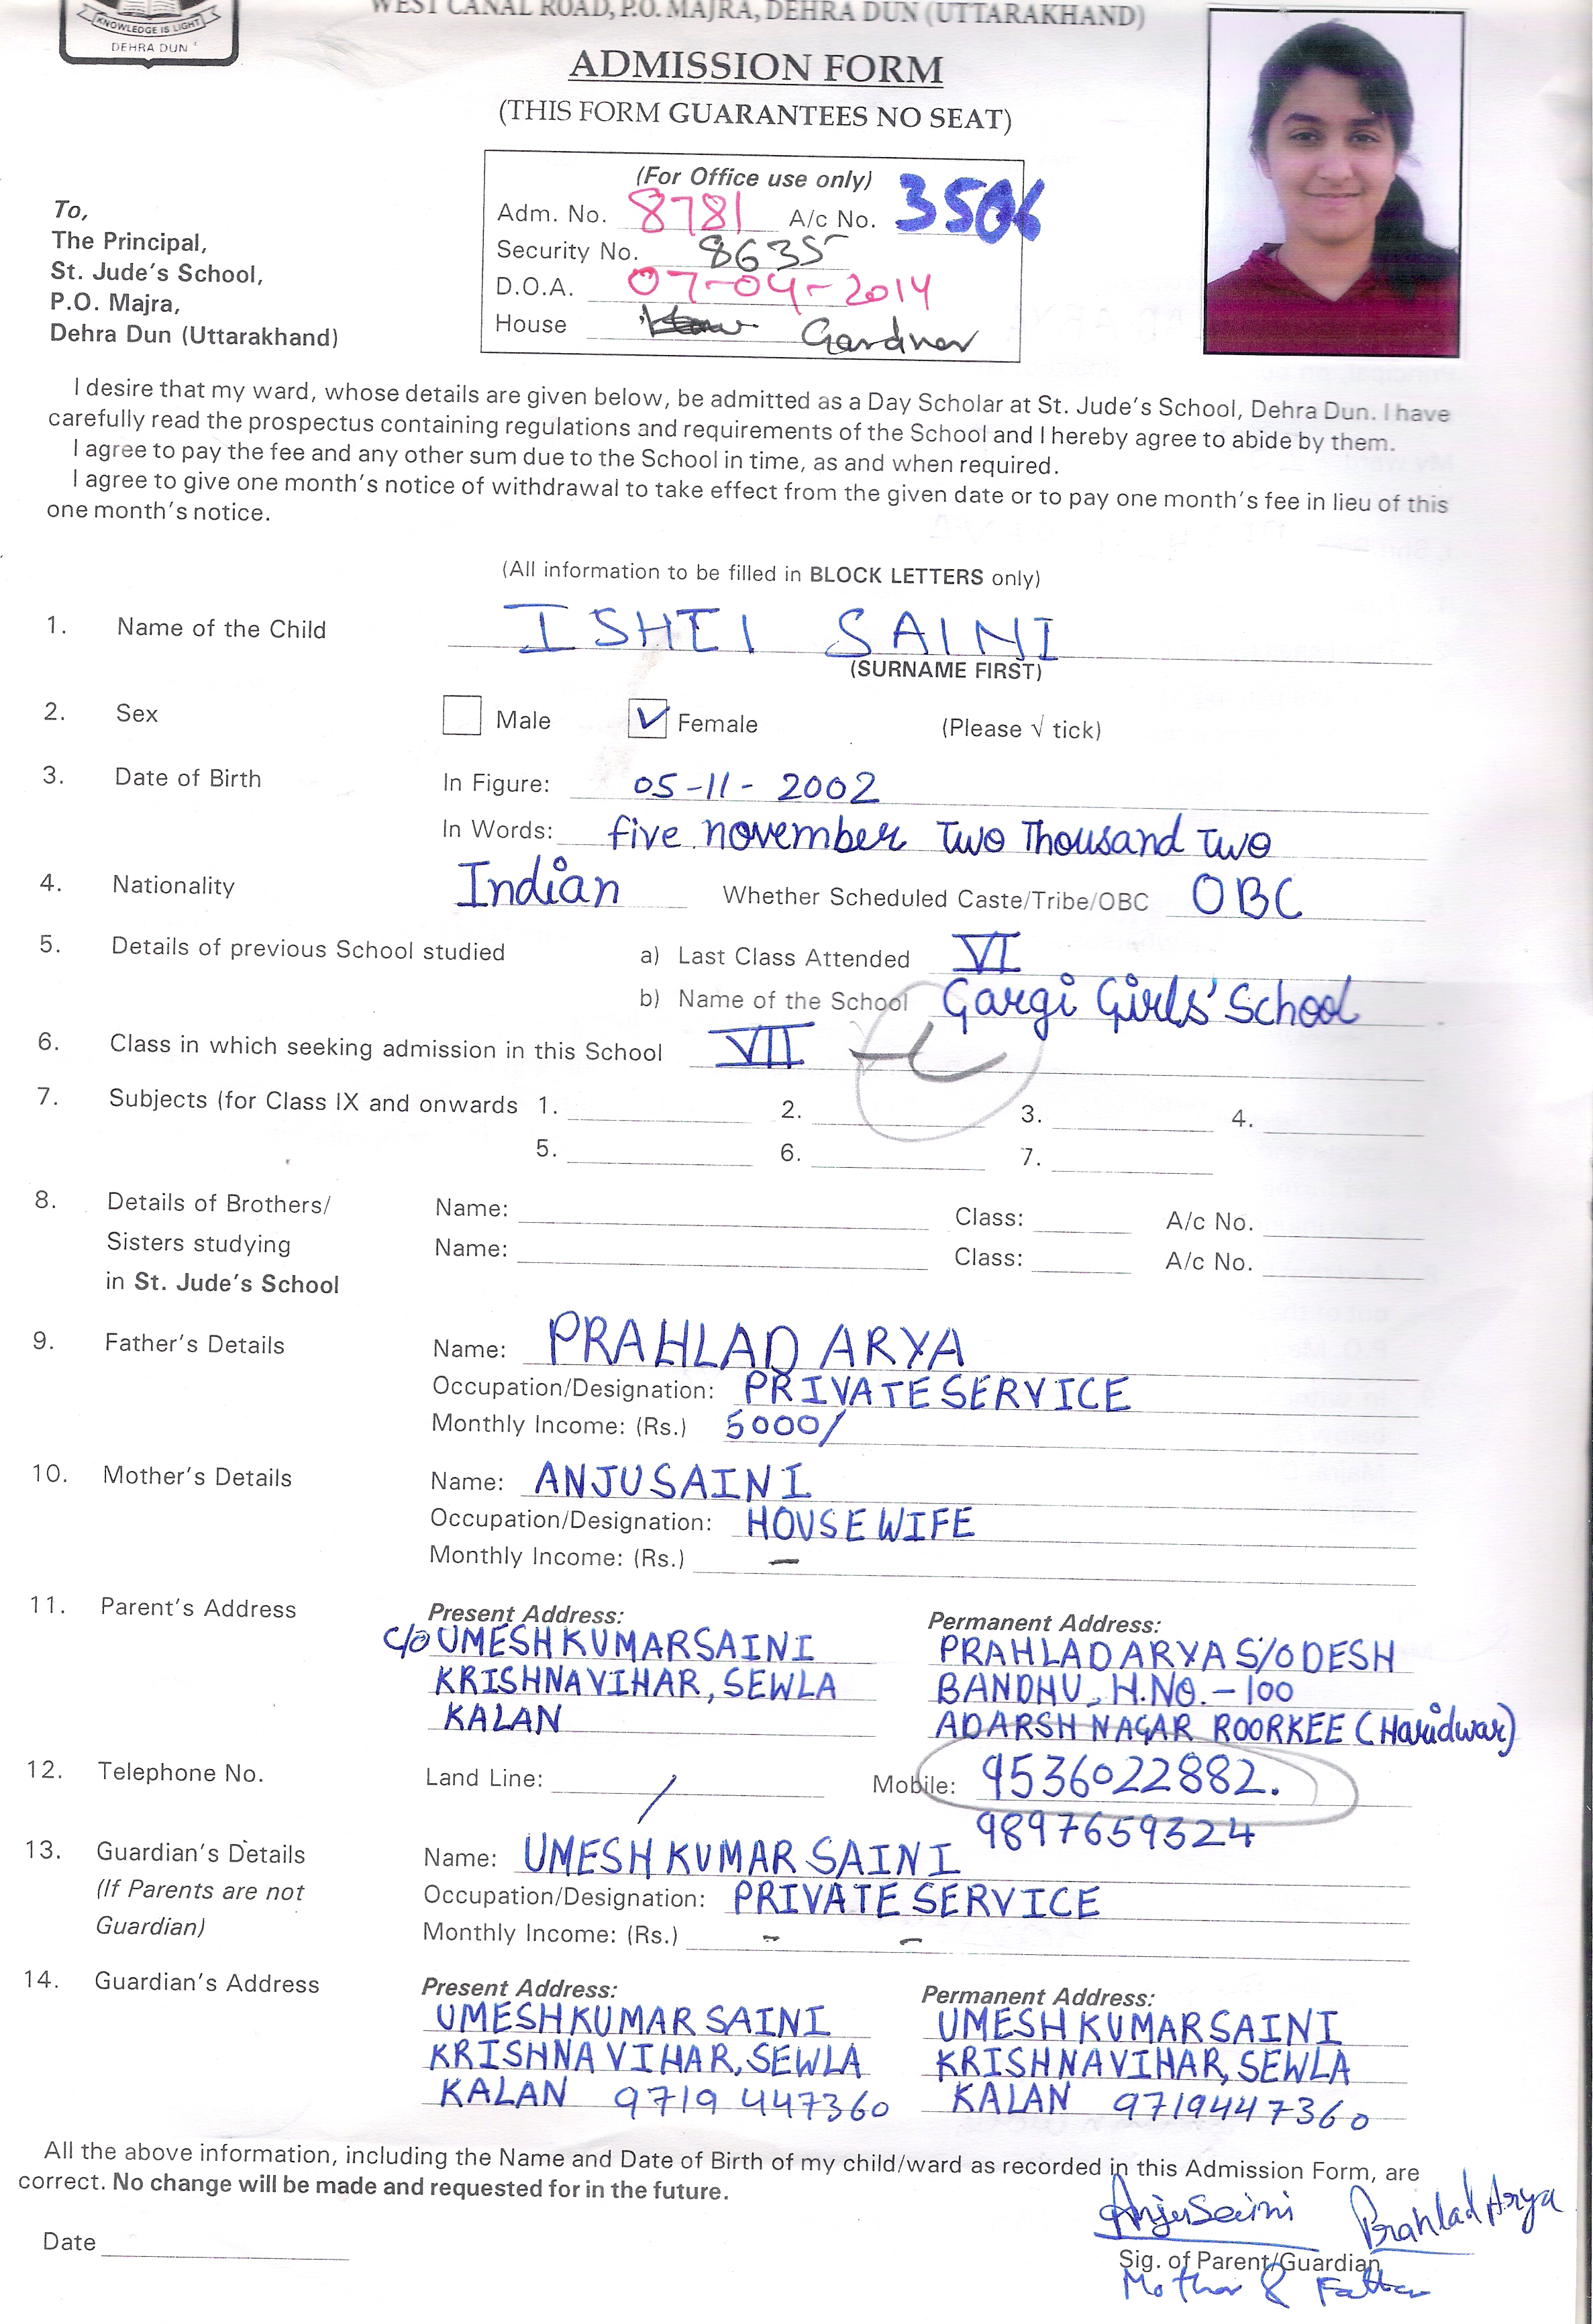 KNOWLEDGE IS LIGHT
DEHRA DUN
WEST CANAL ROAD, P.O. MAJRA, DEHRA DUN (UTTARAKHAND)
ADMISSION FORM
(THIS FORM GUARANTEES NO SEAT)
(For Office use only)
Adm. No. 8781 A/c No. 3506
Security No. 8635
D.O.A. 07-04-2014
House Gardner
To,
The Principal,
St. Jude's School,
P.O. Majra,
Dehra Dun (Uttarakhand)
I desire that my ward, whose details are given below, be admitted as a Day Scholar at St. Jude's School, Dehra Dun. I have
carefully read the prospectus containing regulations and requirements of the School and I hereby agree to abide by them.
I agree to pay the fee and any other sum due to the School in time, as and when required.
I agree to give one month's notice of withdrawal to take effect from the given date or to pay one month's fee in lieu of this
one month's notice.
(All information to be filled in BLOCK LETTERS only)
1. Name of the Child ISHII SAINI
(SURNAME FIRST)
2. Sex Male Female (Please √ tick)
3. Date of Birth In Figure: 05-11-2002
In Words: five november Two Thousand Two
4. Nationality Indian Whether Scheduled Caste/Tribe/OBC OBC
5. Details of previous School studied a) Last Class Attended VI
b) Name of the School Gargi Girls' School
6. Class in which seeking admission in this School VII
7. Subjects (for Class IX and onwards 1. 2. 3. 4.
5. 6. 7.
8. Details of Brothers/ Name: Class: A/c No.
Sisters studying Name: Class: A/c No.
in St. Jude's School
9. Father's Details Name: PRAHLAD ARYA
Occupation/Designation: PRIVATE SERVICE
Monthly Income: (Rs.) 5000/
10. Mother's Details Name: ANJU SAINI
Occupation/Designation: HOUSE WIFE
Monthly Income: (Rs.) –
11. Parent's Address Present Address: Permanent Address:
C/O UMESH KUMAR SAINI PRAHLAD ARYA S/O DESH
KRISHNA VIHAR, SEWLA BANDHU, H.NO.-100
KALAN ADARSH NAGAR ROORKEE (Haridwar)
12. Telephone No. Land Line: / Mobile: 9536022882.
9897659324
13. Guardian's Details Name: UMESH KUMAR SAINI
(If Parents are not Occupation/Designation: PRIVATE SERVICE
Guardian) Monthly Income: (Rs.) – –
14. Guardian's Address Present Address: Permanent Address:
UMESH KUMAR SAINI UMESH KUMAR SAINI
KRISHNA VIHAR, SEWLA KRISHNA VIHAR, SEWLA
KALAN 9719 447360 KALAN 9719447360
All the above information, including the Name and Date of Birth of my child/ward as recorded in this Admission Form, are
correct. No change will be made and requested for in the future.
Anju Saini Prahlad Arya
Date Sig. of Parent/Guardian
Mother & Father